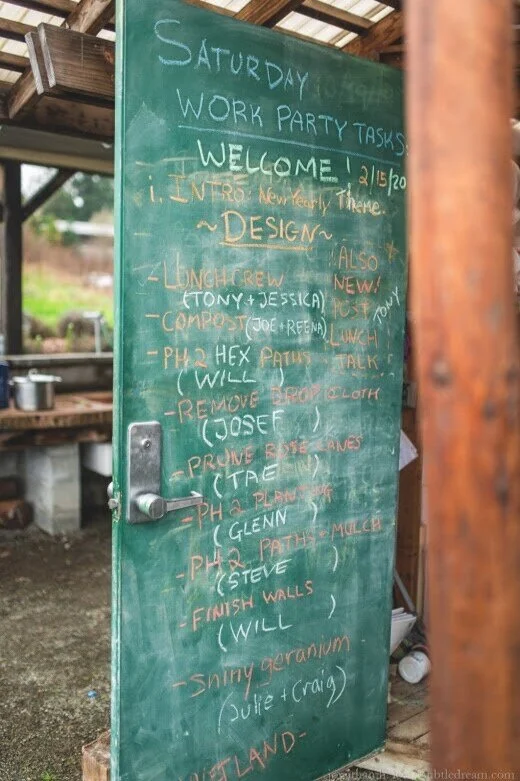 SATURDAY
WORK PARTY TASKS
WELCOME! 2/15/20
i. INTRO: New Yearly Theme.
~DESIGN~
ALSO
NEW!
POST
LUNCH
TALK
TONY
- LUNCH CREW
(TONY + JESSICA)
- COMPOST (JOE + REENA)
- PH 2 HEX PATHS
(WILL)
- REMOVE DROP CLOTH
(JOSEF)
- PRUNE ROSE CANES
(TAE)
- PH 2 PLANTING
(GLENN)
- PH 2 PATHS - MULCH
(STEVE)
- FINISH WALLS
(WILL)
- Shiny geranium
(Julie + Craig)
WETLAND -